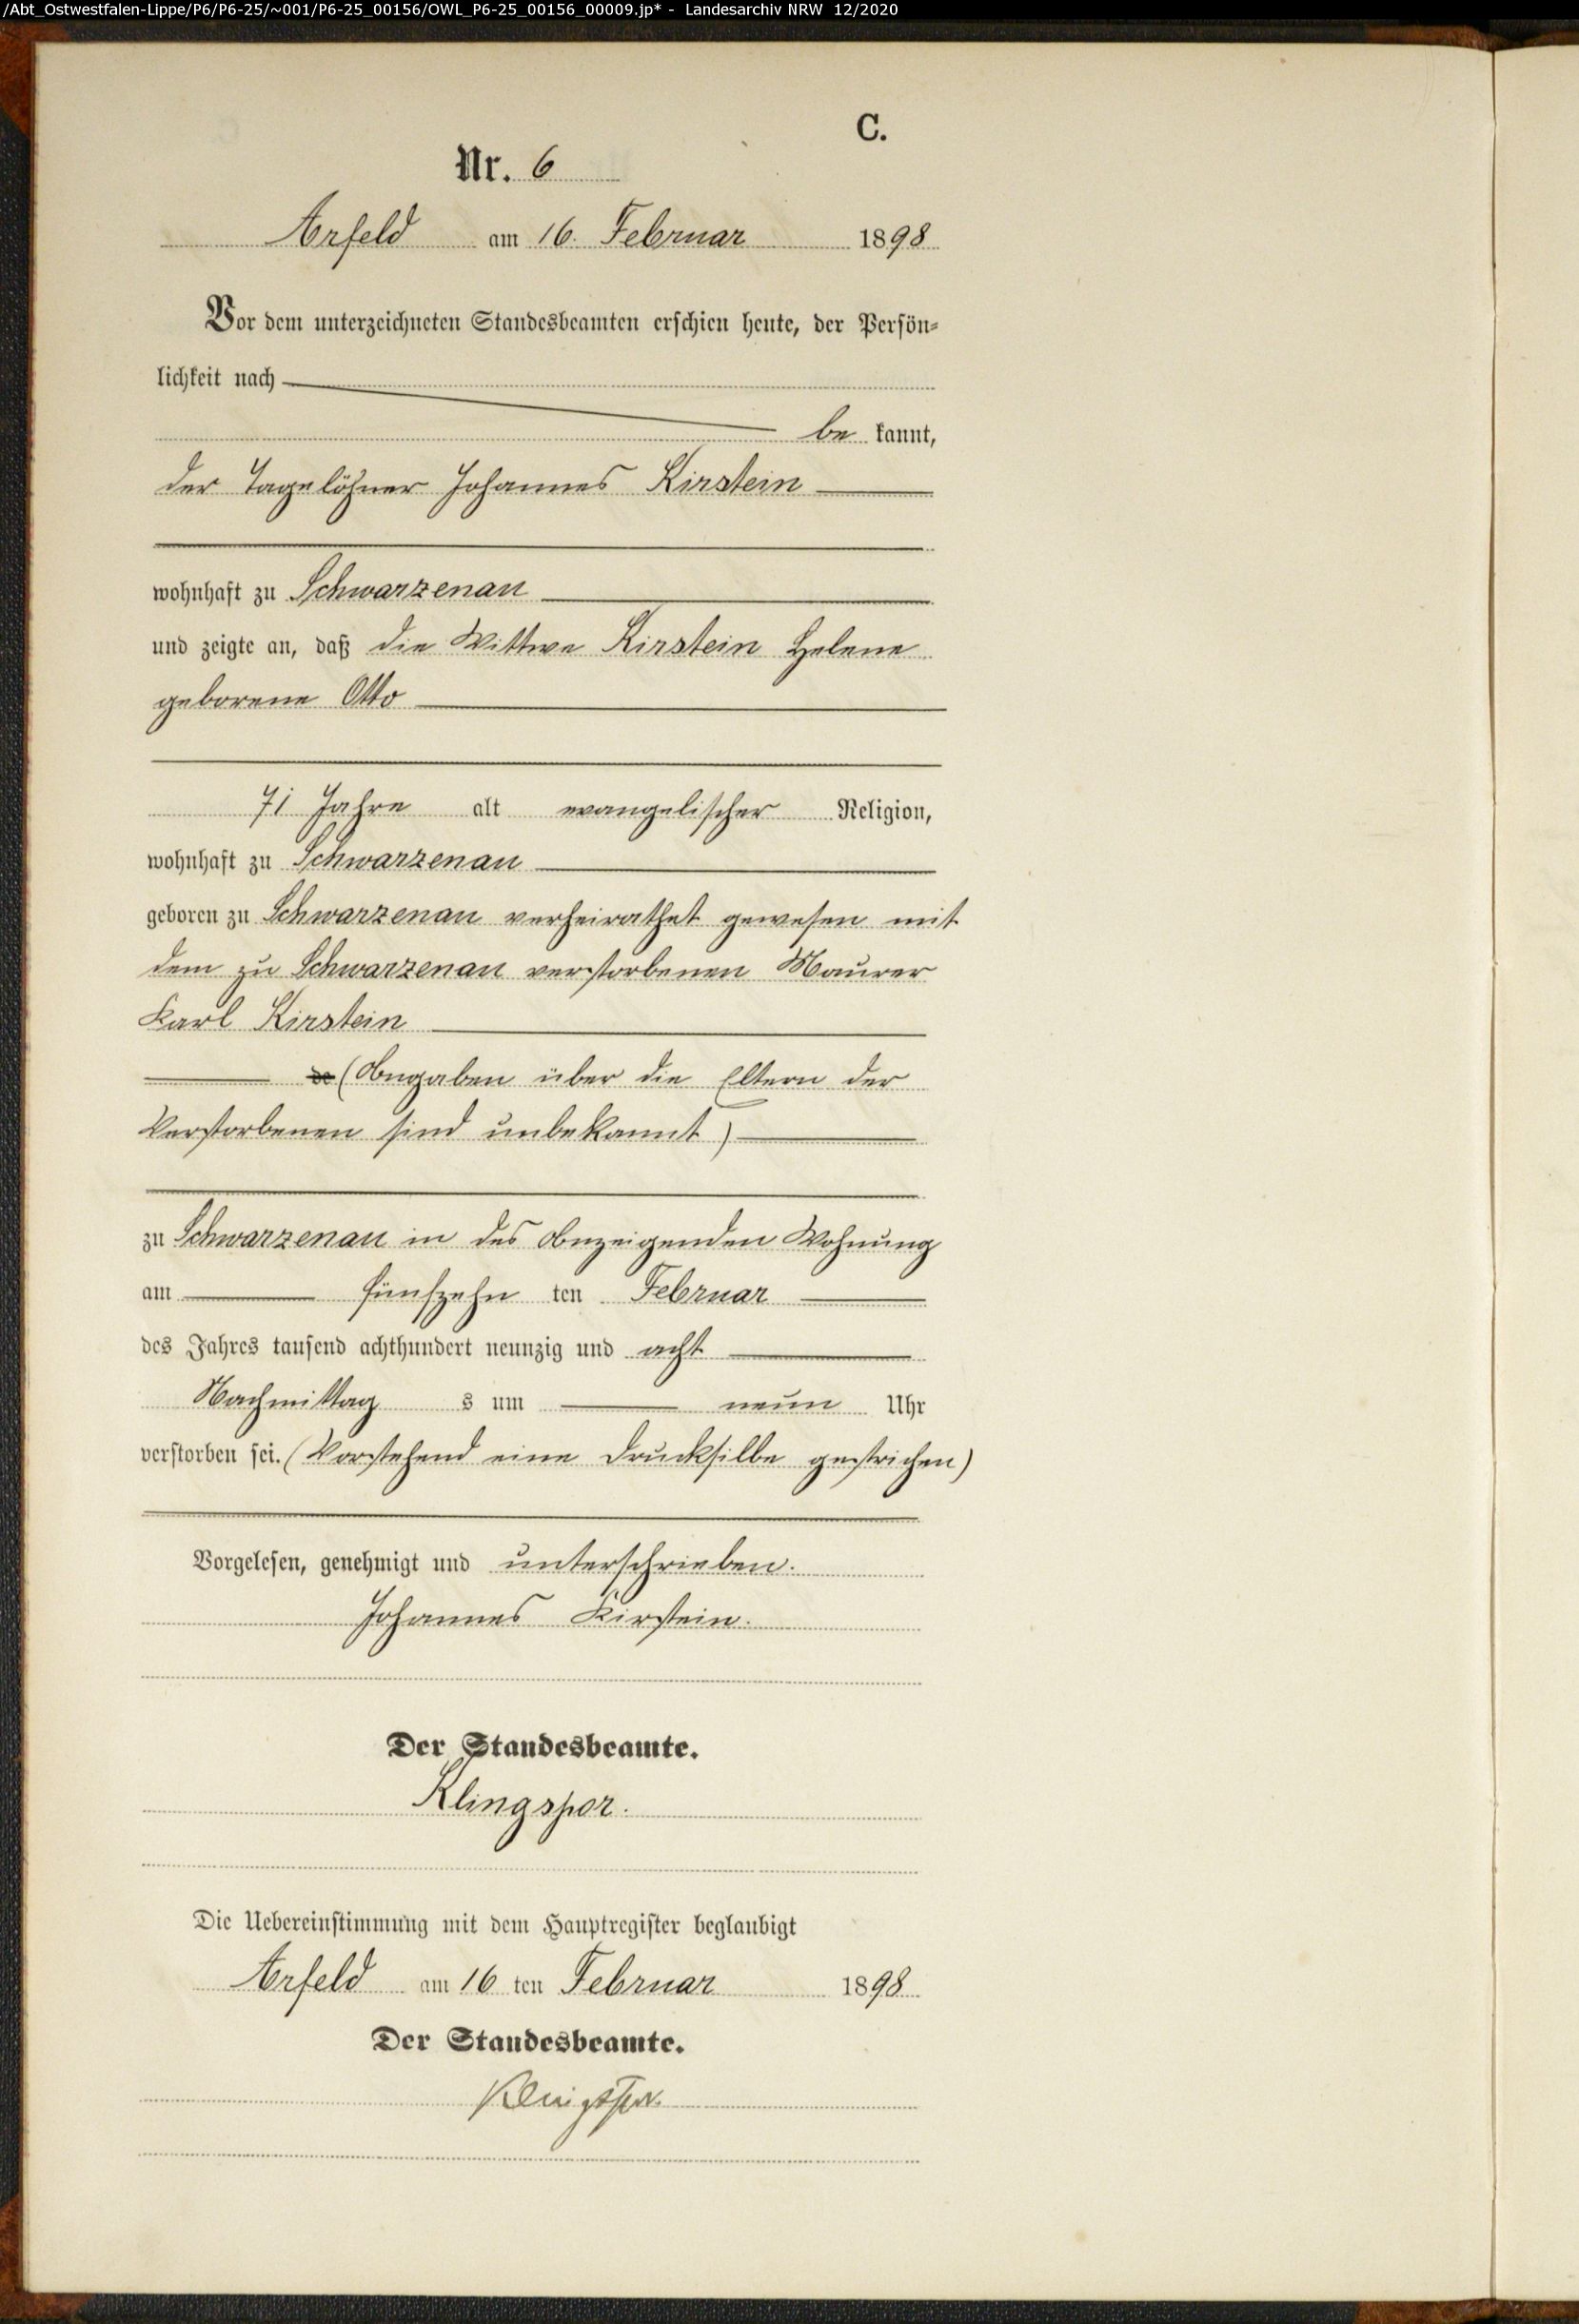 /Abt_Ostwestfalen-Lippe/P6/P6-25/~001/P6-25_00156/OWL_P6-25_00156_00009.jp* - Landesarchiv NRW 12/2020
C.
Nr. 6
Arfeld am 16. Februar 1898
Vor dem unterzeichneten Standesbeamten erschien heute, der Persön-
lichkeit nach
be kannt,
der Tagelöhner Johannes Kirstein
wohnhaft zu Schwarzenau
und zeigte an, daß die Wittwe Kirstein Helene
geborene Otto
71 Jahre alt evangelischer Religion,
wohnhaft zu Schwarzenau
geboren zu Schwarzenau verheirathet gewesen mit
dem zu Schwarzenau verstorbenen Maurer
Karl Kirstein
de (Angaben über die Eltern der
Verstorbenen sind unbekannt)
zu Schwarzenau in des Anzeigenden Wohnung
am fünfzehn ten Februar
des Jahres tausend achthundert neunzig und acht
Nachmittag s um neun Uhr
verstorben sei. (Vorstehend eine Drucksilbe gestrichen)
Vorgelesen, genehmigt und unterschrieben.
Johannes Kirstein.
Der Standesbeamte.
Klingspor.
Die Uebereinstimmung mit dem Hauptregister beglaubigt
Arfeld am 16 ten Februar 1898
Der Standesbeamte.
Klingspor.